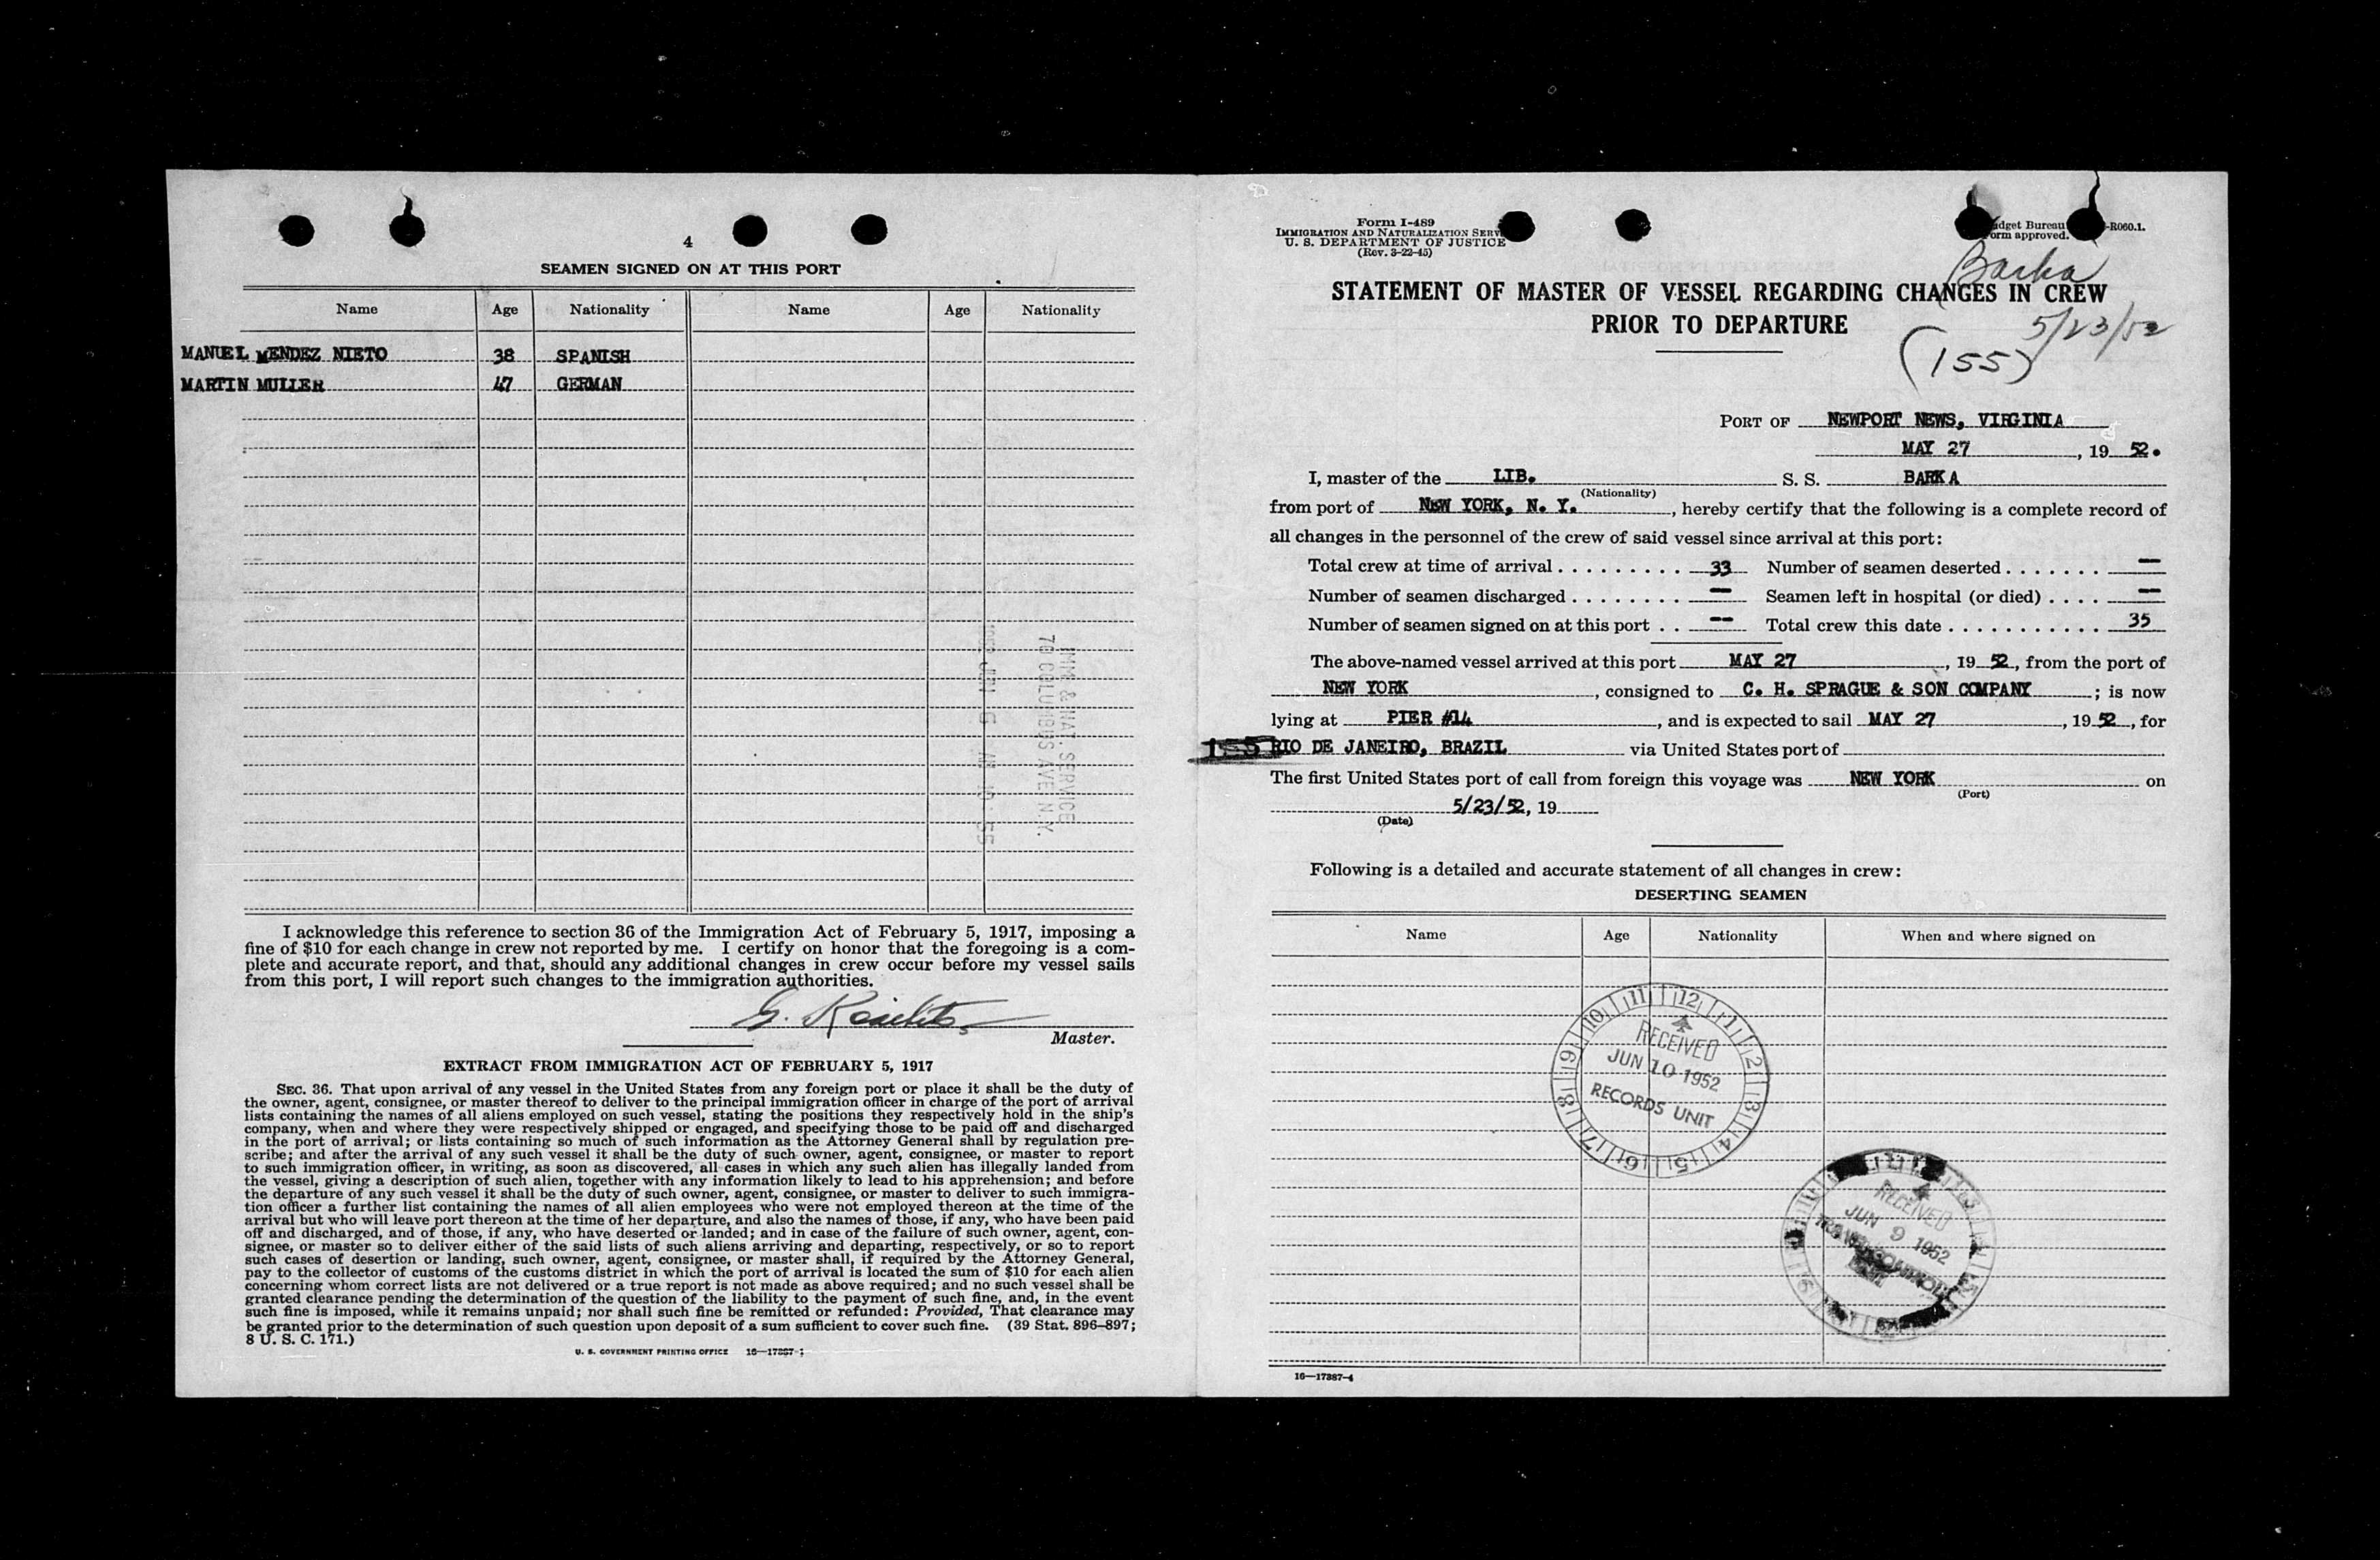 4
SEAMEN SIGNED ON AT THIS PORT
Name Age Nationality Name Age Nationality
MANUEL MENDEZ NIETO 38 SPANISH
MARTIN MULLER 47 GERMAN
IMM. & NAT. SERVICE
70 COLUMBUS AVE N.Y.
JUN 6 AM 10:55
I acknowledge this reference to section 36 of the Immigration Act of February 5, 1917, imposing a
fine of $10 for each change in crew not reported by me. I certify on honor that the foregoing is a com-
plete and accurate report, and that, should any additional changes in crew occur before my vessel sails
from this port, I will report such changes to the immigration authorities.
G.
Master.
EXTRACT FROM IMMIGRATION ACT OF FEBRUARY 5, 1917
SEC. 36. That upon arrival of any vessel in the United States from any foreign port or place it shall be the duty of
the owner, agent, consignee, or master thereof to deliver to the principal immigration officer in charge of the port of arrival
lists containing the names of all aliens employed on such vessel, stating the positions they respectively hold in the ship's
company, when and where they were respectively shipped or engaged, and specifying those to be paid off and discharged
in the port of arrival; or lists containing so much of such information as the Attorney General shall by regulation pre-
scribe; and after the arrival of any such vessel it shall be the duty of such owner, agent, consignee, or master to report
to such immigration officer, in writing, as soon as discovered, all cases in which any such alien has illegally landed from
the vessel, giving a description of such alien, together with any information likely to lead to his apprehension; and before
the departure of any such vessel it shall be the duty of such owner, agent, consignee, or master to deliver to such immigra-
tion officer a further list containing the names of all alien employees who were not employed thereon at the time of the
arrival but who will leave port thereon at the time of her departure, and also the names of those, if any, who have been paid
off and discharged, and of those, if any, who have deserted or landed; and in case of the failure of such owner, agent, con-
signee, or master so to deliver either of the said lists of such aliens arriving and departing, respectively, or so to report
such cases of desertion or landing, such owner, agent, consignee, or master shall, if required by the Attorney General,
pay to the collector of customs of the customs district in which the port of arrival is located the sum of $10 for each alien
concerning whom correct lists are not delivered or a true report is not made as above required; and no such vessel shall be
granted clearance pending the determination of the question of the liability to the payment of such fine, and, in the event
such fine is imposed, while it remains unpaid; nor shall such fine be remitted or refunded: Provided, That clearance may
be granted prior to the determination of such question upon deposit of a sum sufficient to cover such fine. (39 Stat. 896–897;
8 U. S. C. 171.)
U. S. GOVERNMENT PRINTING OFFICE 16—17387-1
Form I-489
IMMIGRATION AND NATURALIZATION SERV
U. S. DEPARTMENT OF JUSTICE
(Rev. 3-22-45)
dget Bureau -R060.1.
orm approved.
Barka
STATEMENT OF MASTER OF VESSEL REGARDING CHANGES IN CREW
PRIOR TO DEPARTURE
5/23/52
(155)
PORT OF NEWPORT NEWS, VIRGINIA
MAY 27, 19 52.
I, master of the LIB. S. S. BARKA
(Nationality)
from port of NEW YORK, N. Y., hereby certify that the following is a complete record of
all changes in the personnel of the crew of said vessel since arrival at this port:
Total crew at time of arrival . . . . . . . . . 33 Number of seamen deserted . . . . . . . —
Number of seamen discharged . . . . . . . . — Seamen left in hospital (or died) . . . . —
Number of seamen signed on at this port . . -- Total crew this date . . . . . . . . . . . . 35
The above-named vessel arrived at this port MAY 27, 19 52, from the port of
NEW YORK, consigned to C. H. SPRAGUE & SON COMPANY; is now
lying at PIER #14, and is expected to sail MAY 27, 19 52, for
155 RIO DE JANEIRO, BRAZIL via United States port of
The first United States port of call from foreign this voyage was NEW YORK on
(Port)
5/23/52, 19
(Date)
Following is a detailed and accurate statement of all changes in crew:
DESERTING SEAMEN
Name Age Nationality When and where signed on
11 12 1 2 3 4 5 6 7 8 9 10
RECEIVED
JUN 10 1952
RECORDS UNIT
RECEIVED
JUN 9 1952
16—17387-4